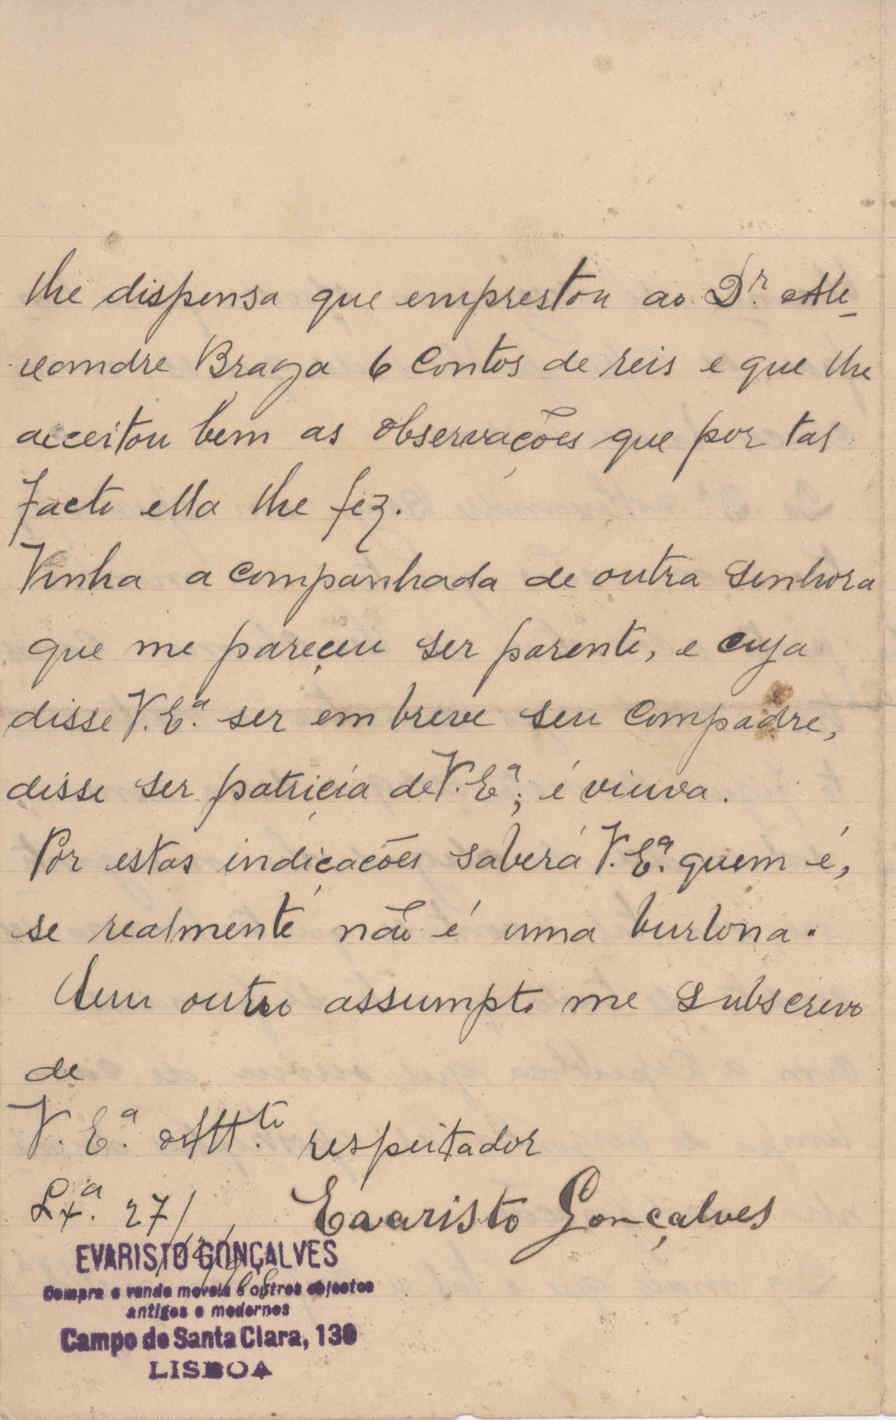 lhe dispensa que emprestou ao Dr. Ale-
xandre Braga 6 Contos de reis e que lhe
acceitou bem as observações que por tal
facto ella lhe fez.
Vinha acompanhada de outra Senhora
que me pareçeu ser parente, e cuja
disse V. Eª. ser em breve seu Compadre,
disse ser patricia de V. Eª; é viuva.
Por estas indicações saberá V. Eª. quem é,
se realmente não é uma burlona.
Sem outro assumpto me Subscrevo
de
V. Eª. Att.te respeitador
Lxª. 27/ Evaristo Gonçalves
EVARISTO GONÇALVES
Compra e vende moveis e outros objectos
antigos e modernos
Campo de Santa Clara, 130
LISBOA